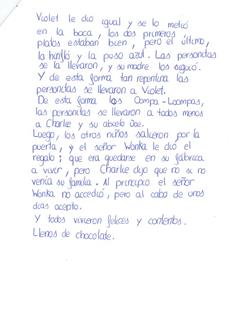 Violet le dio igual y se lo metió
en la boca, los dos primeros
platos estaban bien, pero el último,
la hinfló y la puso azul. Las personitas
se la llevaron, y su madre los siguió.
Y de esta forma tan repentina las
personitas se llevaron a Violet.
De esta forma los Oompa-Loompas,
las personitas se llevaron a todos menos
a Charlie y su abuelo Joe.
Luego, los otros niños salieron por la
puerta, y el señor Wonka le dió el
regalo; que era quedarse en su fábrica
a vivir, pero Charlie dijo que no si no
venía su familia. Al principio el señor
Wonka no accedió, pero al cabo de unos
días aceptó.
Y todos vivieron felices y contentos.
Llenos de chocolate.